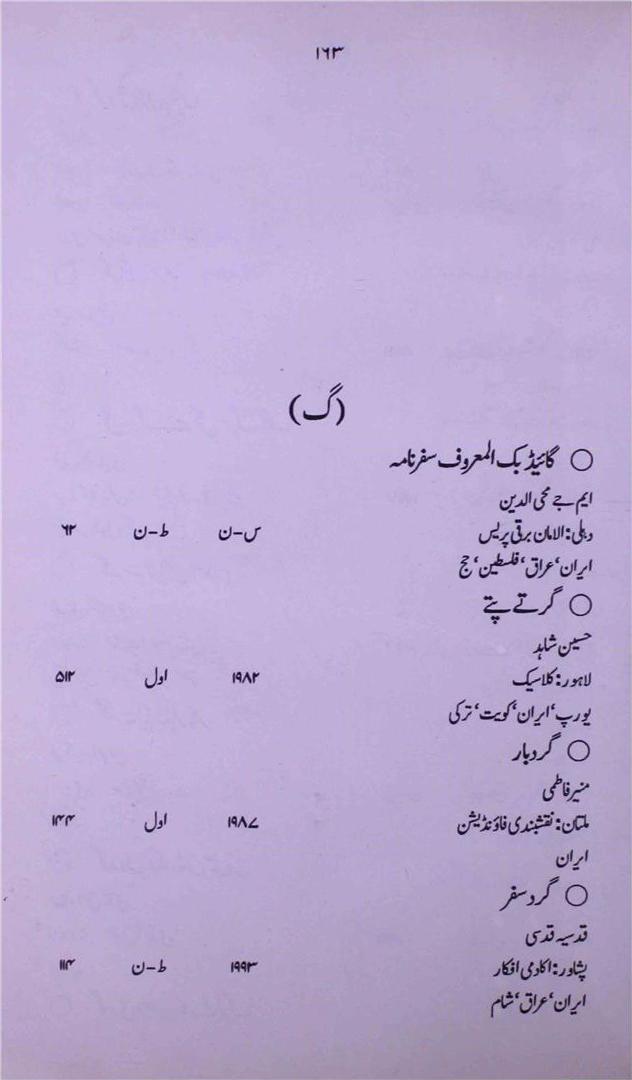 ۱۶۳
(گ)
○ گائیڈ بک المعروف سفرنامہ
ایم جے محی الدین
دہلی: الامان برقی پریس س-ن ط-ن ۶۲
ایران، عراق، فلسطین، حج
○ گرتے پتے
حسین شاہد
لاہور: کلاسیک ۱۹۸۲ اول ۵۱۲
یورپ، ایران، کویت، ترکی
○ گردبار
منیر فاطمی
ملتان: نقشبندی فاؤنڈیشن ۱۹۸۷ اول ۱۴۴
ایران
○ گرد سفر
قدسیہ قدسی
پشاور: اکادمی افکار ۱۹۹۳ ط-ن ۱۱۴
ایران، عراق، شام